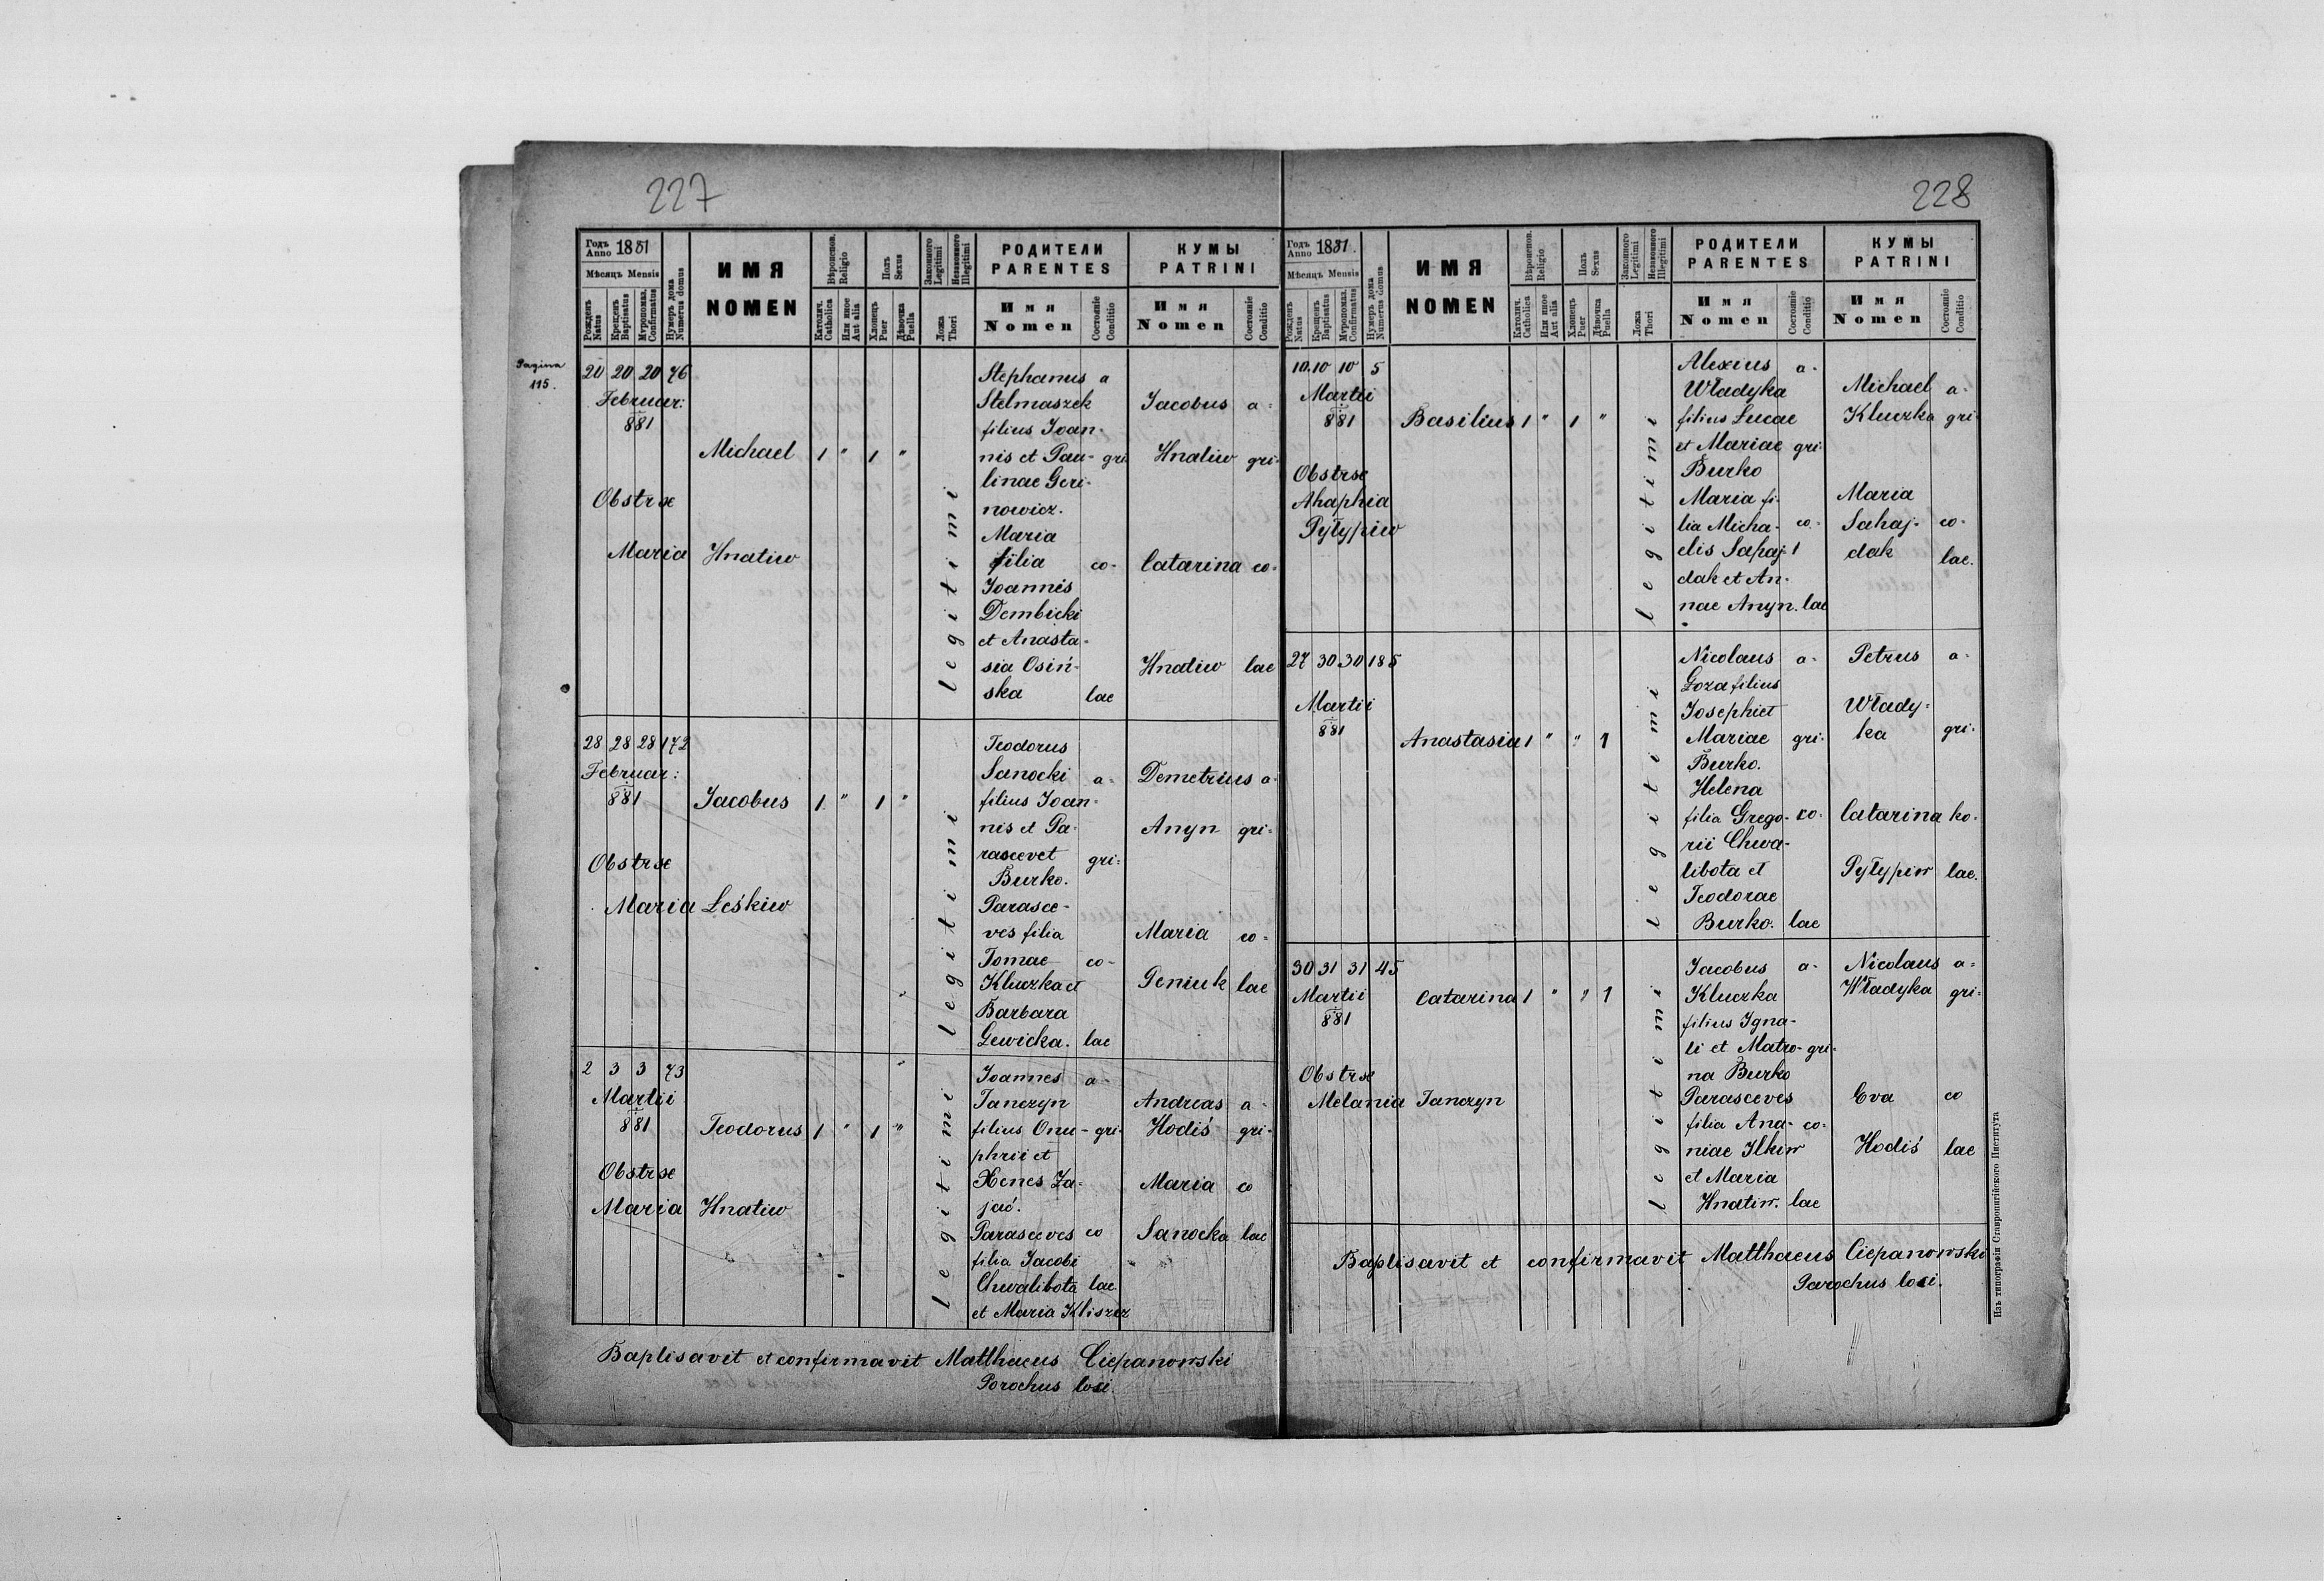 227
Годъ Anno 1881
Мѣсяцъ Mensis
Рожденъ Natus
Крещенъ Baptisatus
Мѵропомаз. Confirmatus
Нумеръ дома Numerus domus
ИМЯ
NOMEN
Вѣроисповѣд. Religio
Католич. Catholica
Или иное Aut alia
Полъ Sexus
Хлопецъ Puer
Дѣвочка Puella
Законного Legitimi
Незаконного Illegitimi
Ложа Thori
РОДИТЕЛИ
PARENTES
Имя
Nomen
Состояніе Conditio
КУМЫ
PATRINI
Имя
Nomen
Состояніе Conditio
Pagina
115.
20 20 20 76
Februar:
881
Michael 1 " 1 "
Obstrse
Maria Hnatiw
legitimi
Stephanus a
Stelmaszek
filius Joan-
nis et Pau- gri-
linae Geri-
nowicz.
Maria
filia co-
Joannis
Dembicki
et Anasta-
sia Osiń-
ska lae
Jacobus a-
Hnatiw gri-
Catarina co-
Hnatiw lae
28 28 28 172
Februar:
881
Jacobus 1 " 1 "
Obstrse
Maria Leśkiw
legitimi
Teodorus
Sanocki a-
filius Joan-
nis et Pa-
rascevet gri-
Burko.
Parasce-
ves filia
Tomae co-
Kluczka et
Barbara
Lewicka. lae
Demetrius a-
Anyn gri-
Maria co-
Peniuk lae
2 3 3 73
Martii
881
Teodorus 1 " 1 "
Obstrse
Maria Hnatiw
legitimi
Joannes a-
Janczyn
filius Onu- gri-
phrii et
Xenes Za-
jać.
Parasceves co
filia Jacobi
Chwalibota lae
et Maria Kliszcz
Andreas a-
Hodiś gri-
Maria co
Sanocka lae
Baptisavit et confirmavit Matthaeus Ciepanowski
Porochus loci.
228
Годъ Anno 1881.
Мѣсяцъ Mensis
Рожденъ Natus
Крещенъ Baptisatus
Мѵропомаз. Confirmatus
Нумеръ дома Numerus domus
ИМЯ
NOMEN
Вѣроисповѣд. Religio
Католич. Catholica
Или иное Aut alia
Полъ Sexus
Хлопецъ Puer
Дѣвочка Puella
Законного Legitimi
Незаконного Illegitimi
Ложа Thori
РОДИТЕЛИ
PARENTES
Имя
Nomen
Состояніе Conditio
КУМЫ
PATRINI
Имя
Nomen
Состояніе Conditio
10 10 10 5
Martii
881
Basilius 1 " 1 "
Obstrse
Ahaphia
Pyłypiw
legitimi
Alexius a-
Władyka
filius Lucae
et Mariae gri-
Burko
Maria fi-
lia Micha- co-
elis Sahaj-
dak et An-
nae Anyn. lae
Michael a-
Kluczka gri-
Maria
Sahaj- co-
dak lae.
27 30 30 185
Martii
881
Anastasia 1 " " 1
legitimi
Nicolaus a-
Loza filius
Josephi et
Mariae gri-
Burko.
Helena
filia Grego- co-
rii Chwa-
libota et
Teodorae
Burko. lae
Petrus a-
Włady-
ka gri-
Catarina ko-
Pyłypiw lae.
30 31 31 45
Martii
881
Catarina 1 " " 1
Obstrse
Melania Janczyn
legitimi
Jacobus a-
Kluczka
filius Igna-
ti et Matro- gri-
na Burko
Parasceves
filia Ana- co-
niae Ilkiw
et Maria
Hnatiw. lae
Nicolaus a-
Władyka gri-
Eva co
Hodiś lae
Baptisavit et confirmavit Matthaeus Ciepanowski
Parochus loci.
Изъ типографіи Ставропигійского Института